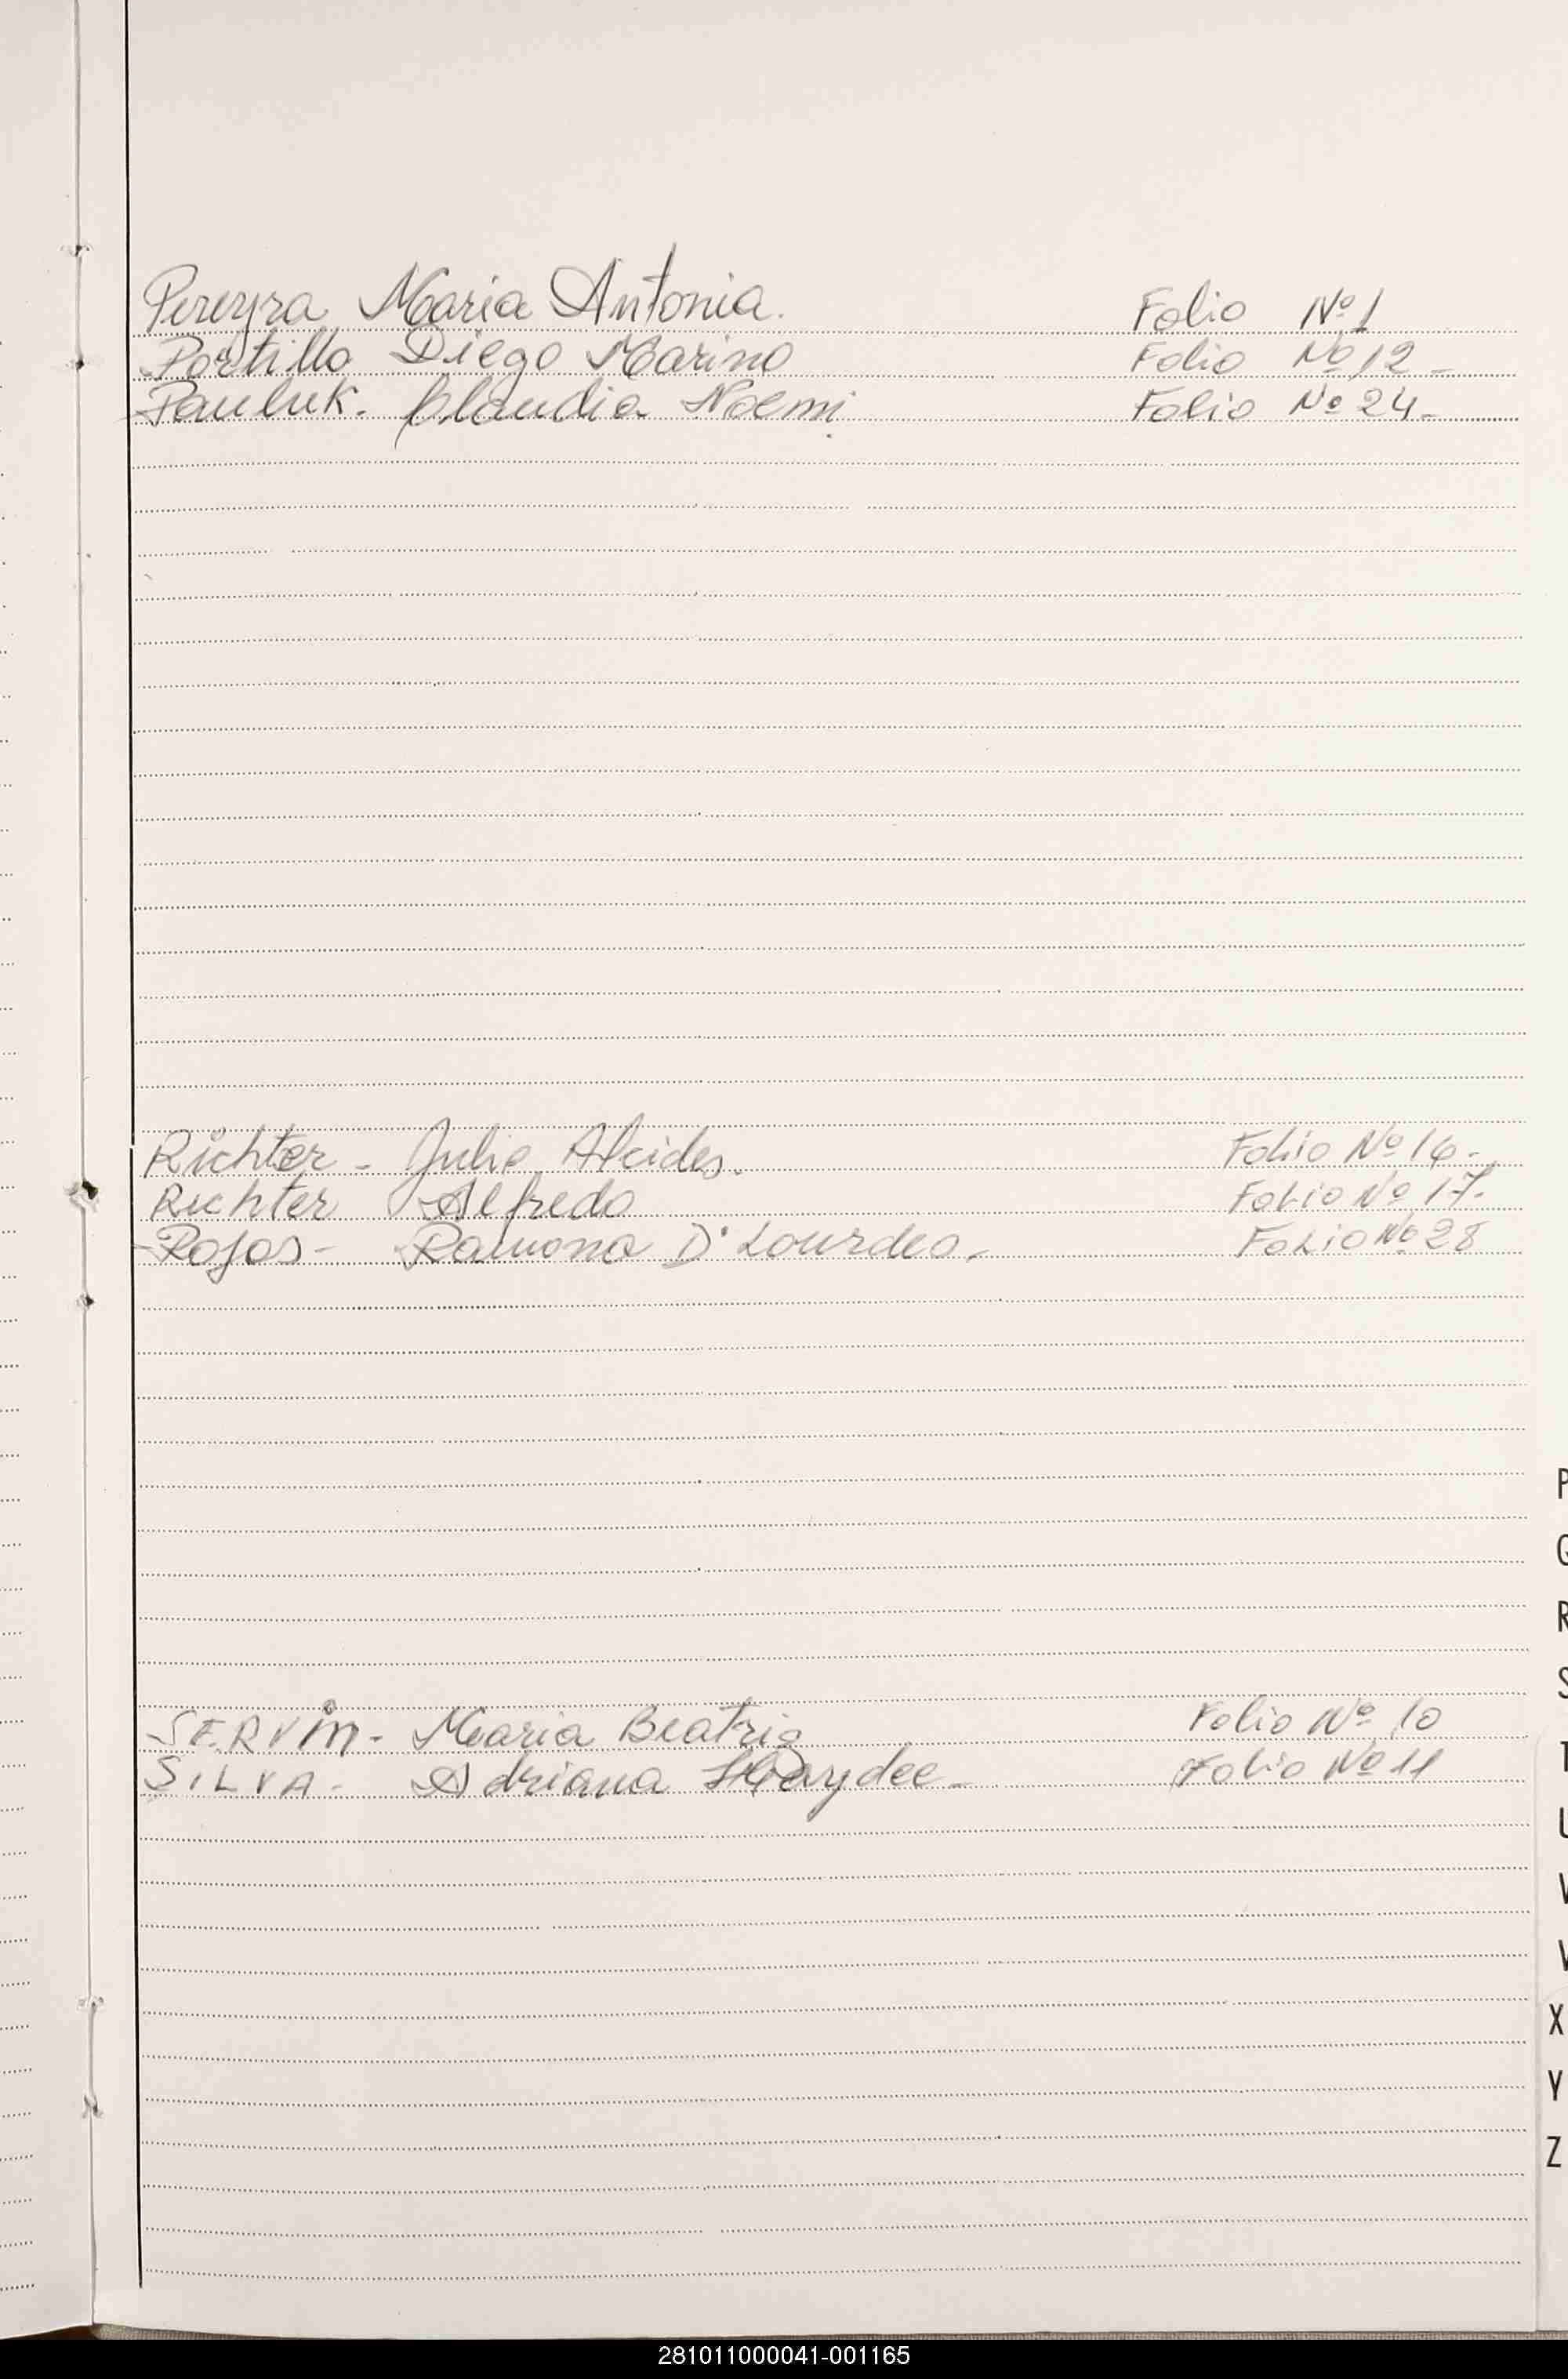 Pereyra Maria Antonia. Folio Nº 1
Portillo Diego Marino Folio Nº 12 -
Pauluk. Claudia Noemi Folio Nº 24 -
Richter - Julio Alcides. Folio Nº 14 -
Richter Alfredo Folio Nº 17.
Rojas - Ramona D. Lourdes. Folio Nº 28
SERVin - Maria Beatriz Folio Nº 10
SILVA - Adriana Haydee - Folio Nº 11
P
Q
R
S
T
U
V
W
X
Y
Z
281011000041-001165